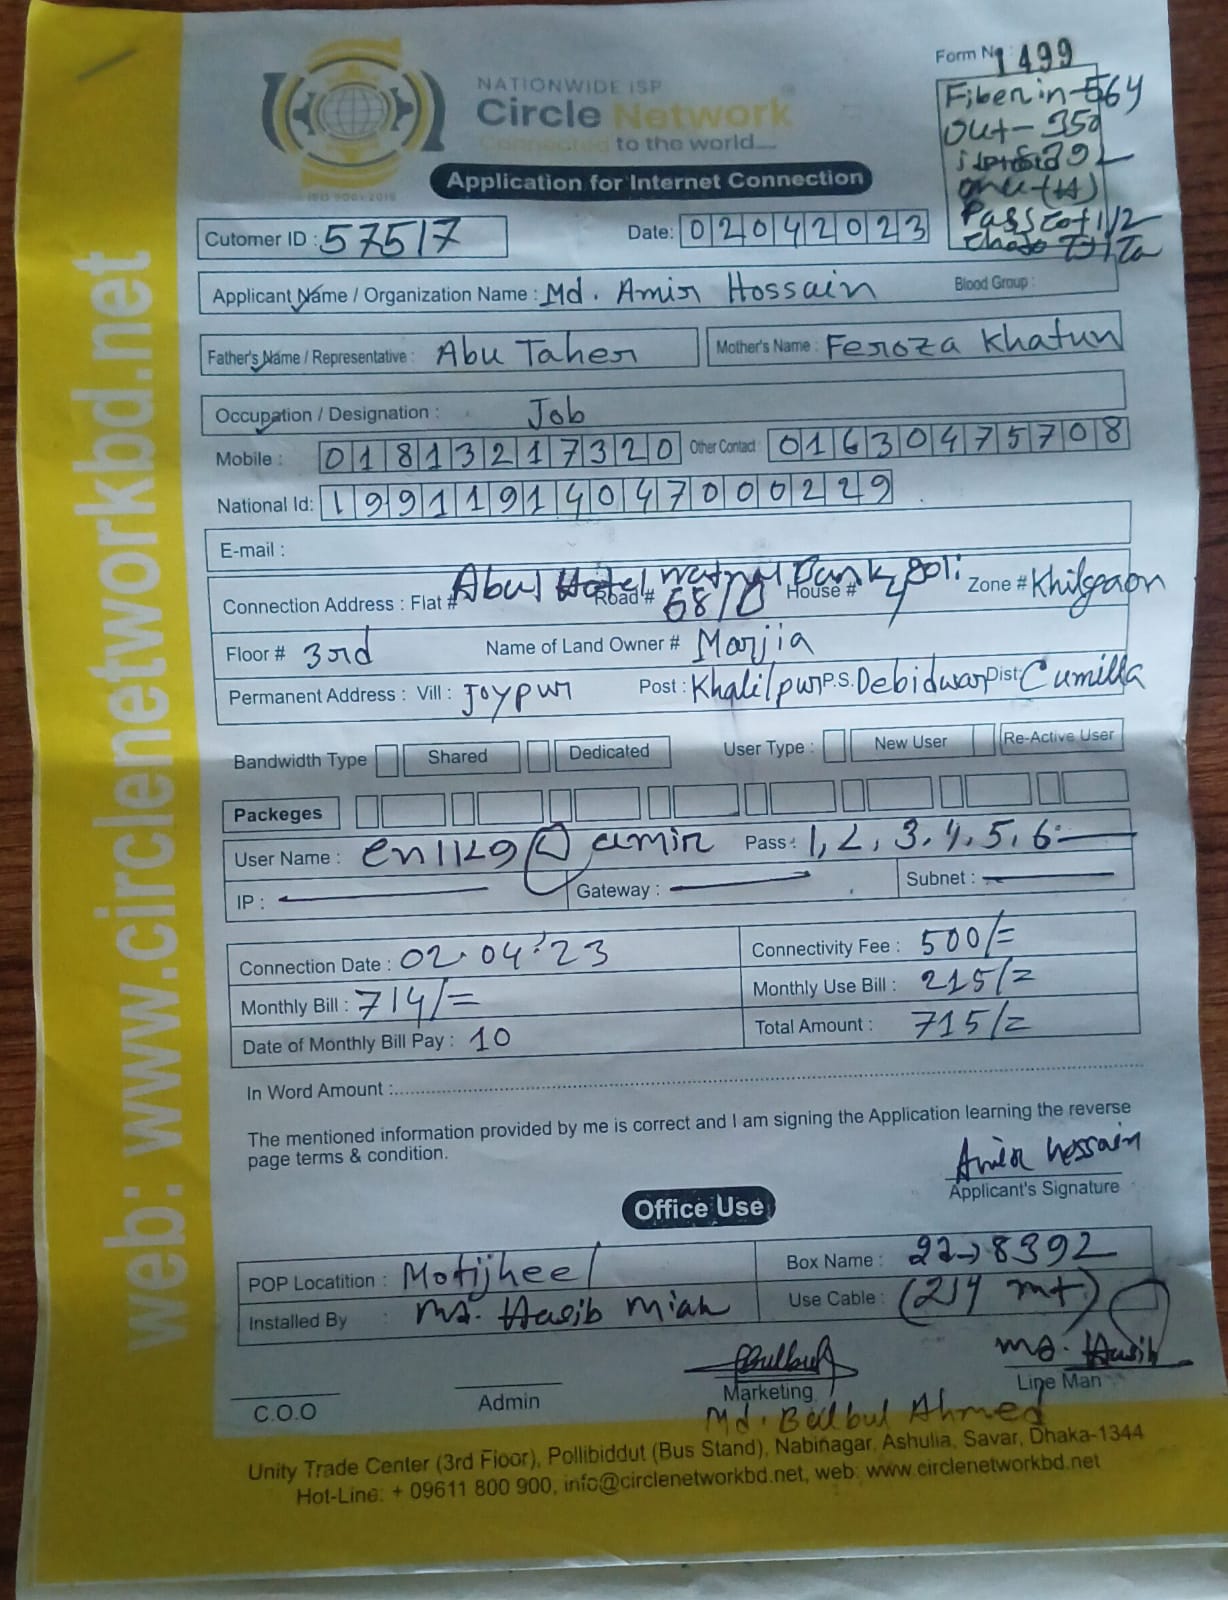 Form No: 1499
Fiber in - 564
Out - 350
NATIONWIDE ISP
Circle Network
Connected to the world...
ISO 9001:2015
Application for Internet Connection
Cutomer ID : 57517
Date: 02042023
Applicant Name / Organization Name : Md. Amir Hossain Blood Group :
Father's Name / Representative : Abu Taher Mother's Name : Feroza Khatun
Occupation / Designation : Job
Mobile : 01813217320 Other Contact 01630475708
National Id: 19911914047000229
E-mail :
Abul Hotel goli
Connection Address : Flat # Road # 68/ House # Zone # Khilgaon
Floor # 3rd Name of Land Owner # Marjia
Permanent Address : Vill : Joypur Post : Khalilpur P.S. Debidwar Dist: Cumilla
Bandwidth Type Shared Dedicated User Type : New User Re-Active User
Packeges
User Name : amir Pass : 1, 2, 3, 4, 5, 6
IP : Gateway : Subnet :
Connection Date : 02.04.'23 Connectivity Fee : 500/=
Monthly Bill : 714/= Monthly Use Bill : 215/=
Date of Monthly Bill Pay : 10 Total Amount : 715/=
In Word Amount :
The mentioned information provided by me is correct and I am signing the Application learning the reverse
page terms & condition.
Amir Hossain
Applicant's Signature
Office Use
POP Locatition : Motijheel Box Name : 22→8392
Installed By : Md. Hasib Miah Use Cable : (214 mt)
Bulbul Md. Hasib
C.O.O Admin Marketing Line Man
Md. Bulbul Ahmed
Unity Trade Center (3rd Floor), Pollibiddut (Bus Stand), Nabinagar, Ashulia, Savar, Dhaka-1344
Hot-Line: + 09611 800 900, info@circlenetworkbd.net, web: www.circlenetworkbd.net
web: www.circlenetworkbd.net